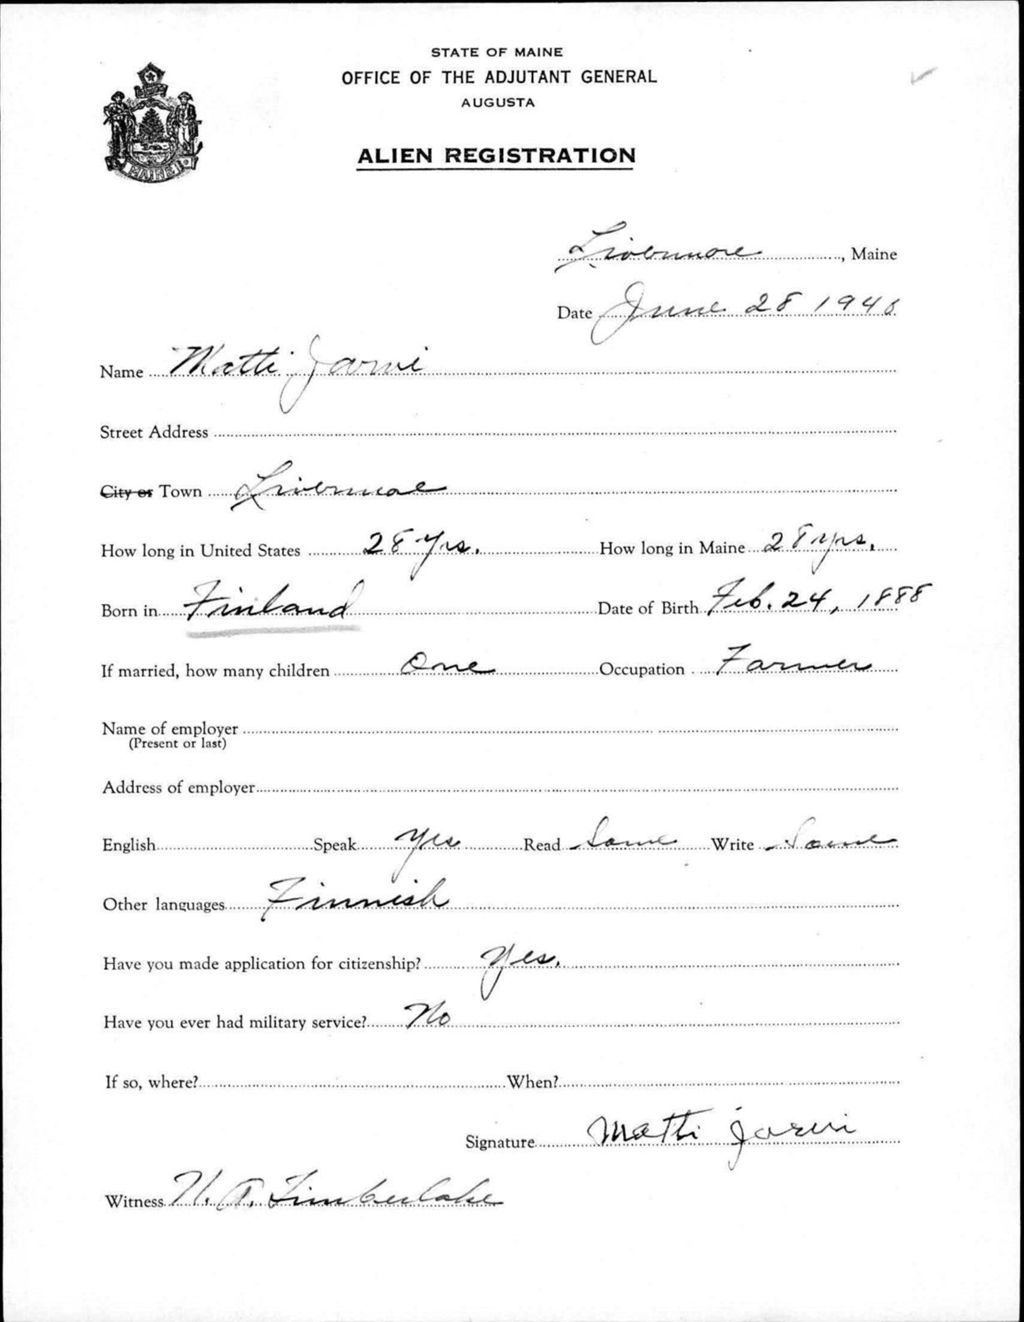 STATE OF MAINE
OFFICE OF THE ADJUTANT GENERAL
AUGUSTA
ALIEN REGISTRATION
Livermore, Maine
Date June 28 1940
Name Matti Jarvi
Street Address
City or Town Livermore
How long in United States 28 yrs. How long in Maine 28 yrs.
Born in Finland Date of Birth Feb. 24, 1888
If married, how many children One Occupation Farmer
Name of employer
(Present or last)
Address of employer
English Speak Yes Read Some Write Some
Other languages Finnish
Have you made application for citizenship? Yes.
Have you ever had military service? No
If so, where? When?
Signature Matti Jarvi
Witness H. A. Timberlake